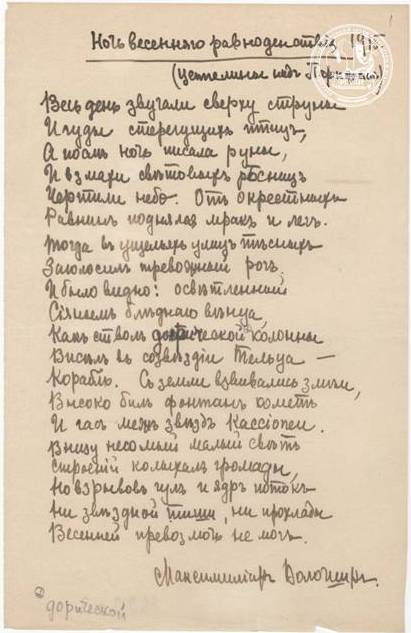 Ночь весенняго равноденствія 1915.
(Цеппелины надъ Парижемъ)
Весь день звучали сверху струны
И гуды стерегущихъ птицъ,
А послѣ ночь писала руны,
И взмахи свѣтовыхъ рѣсницъ
Чертили небо. Отъ окрестныхъ
Равнинъ поднялся мракъ и легъ.
Тогда въ ущельяхъ улицъ тѣсныхъ
Заголосилъ тревожный рогъ.
И было видно: освѣтленный
Сіяньемъ блѣднаго вѣнца,
Какъ стволъ дорической колонны
Висѣлъ въ созвѣздіи Тельца —
Корабль. Съ земли взвивались змѣи,
Высоко билъ фонтанъ кометъ
И гасъ межъ звѣздъ Кассіопеи.
Внизу несомый малый свѣтъ
Строеній колыхалъ громады,
Но взрывовъ гулъ и ядръ потокъ
Ни звѣздной тиши, ни прохлады
Весенней превозмочь не могъ.
Максимиліанъ Волошинъ.
дорической